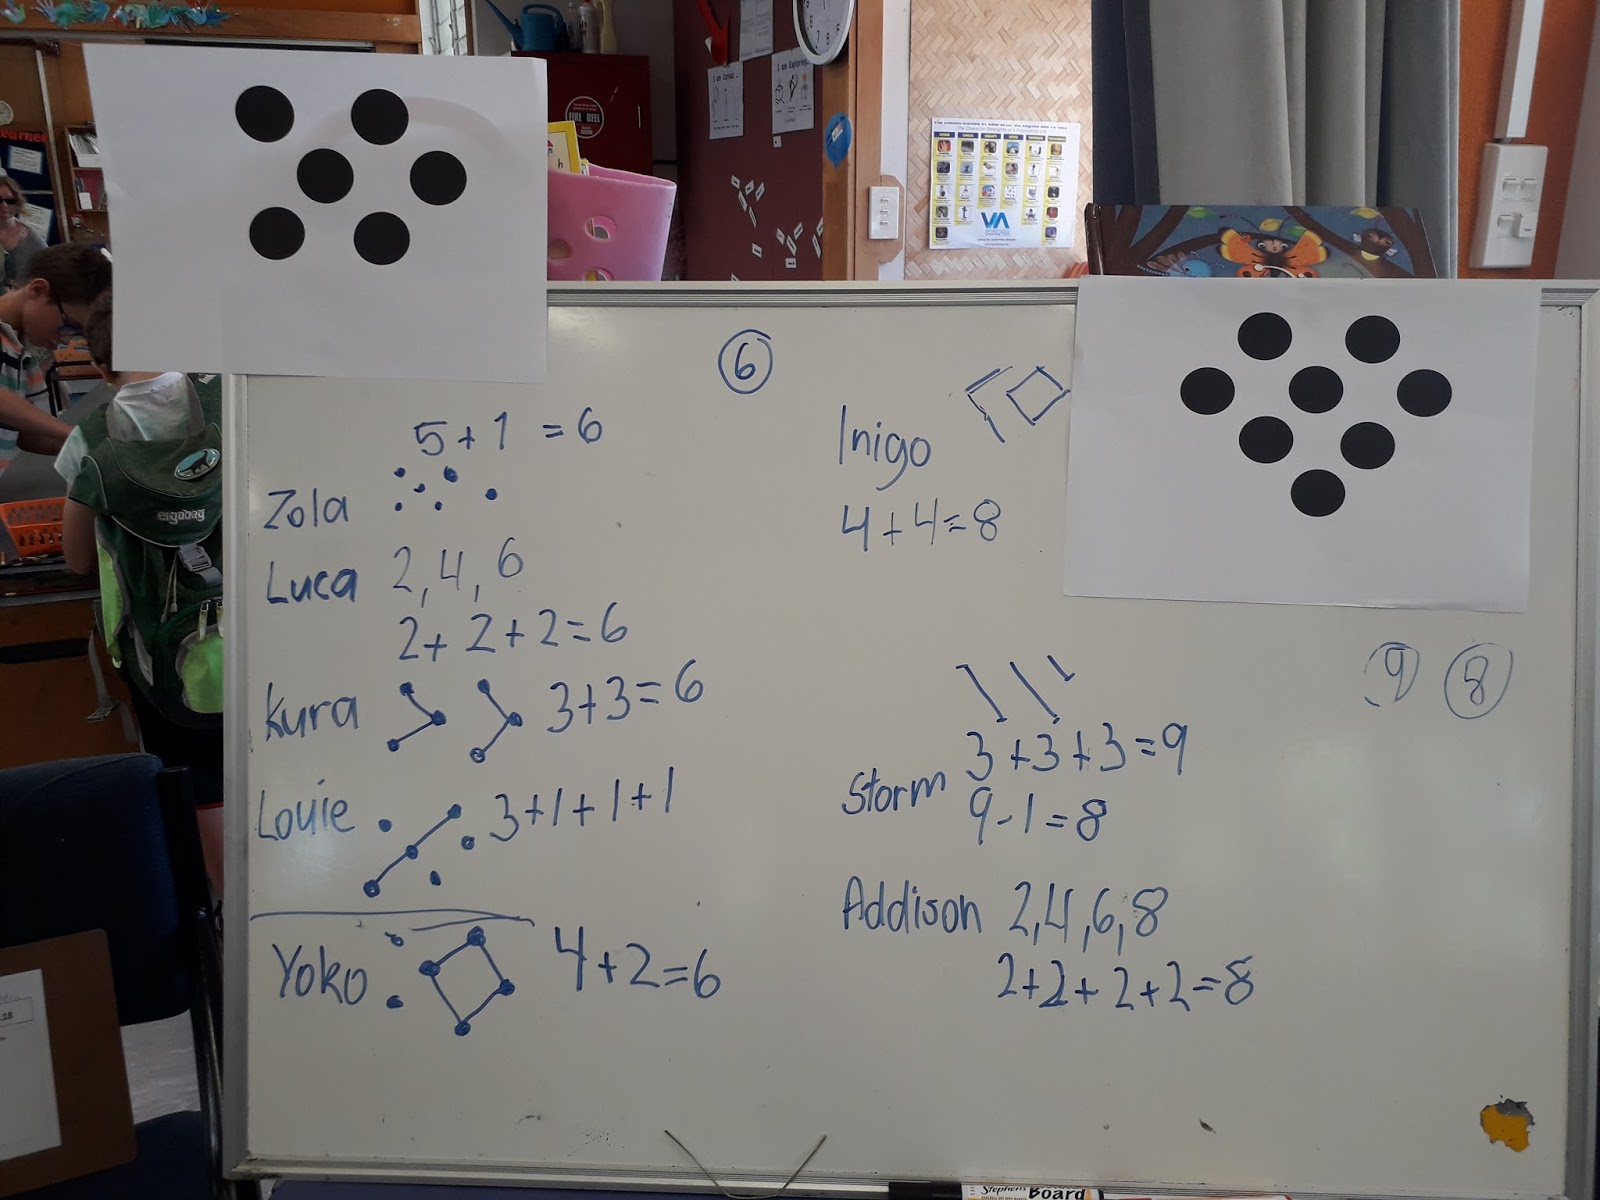 FIRE REEL
I am Curious
I am Exploring
VIA
ergobag
6
5 + 1 = 6
Zola
Luca 2, 4, 6
2 + 2 + 2 = 6
Kura 3 + 3 = 6
Louie 3 + 1 + 1 + 1
Yoko 4 + 2 = 6
Inigo
4 + 4 = 8
9 8
3 + 3 + 3 = 9
Storm
9 - 1 = 8
Addison 2, 4, 6, 8
2 + 2 + 2 + 2 = 8
Stephens Board